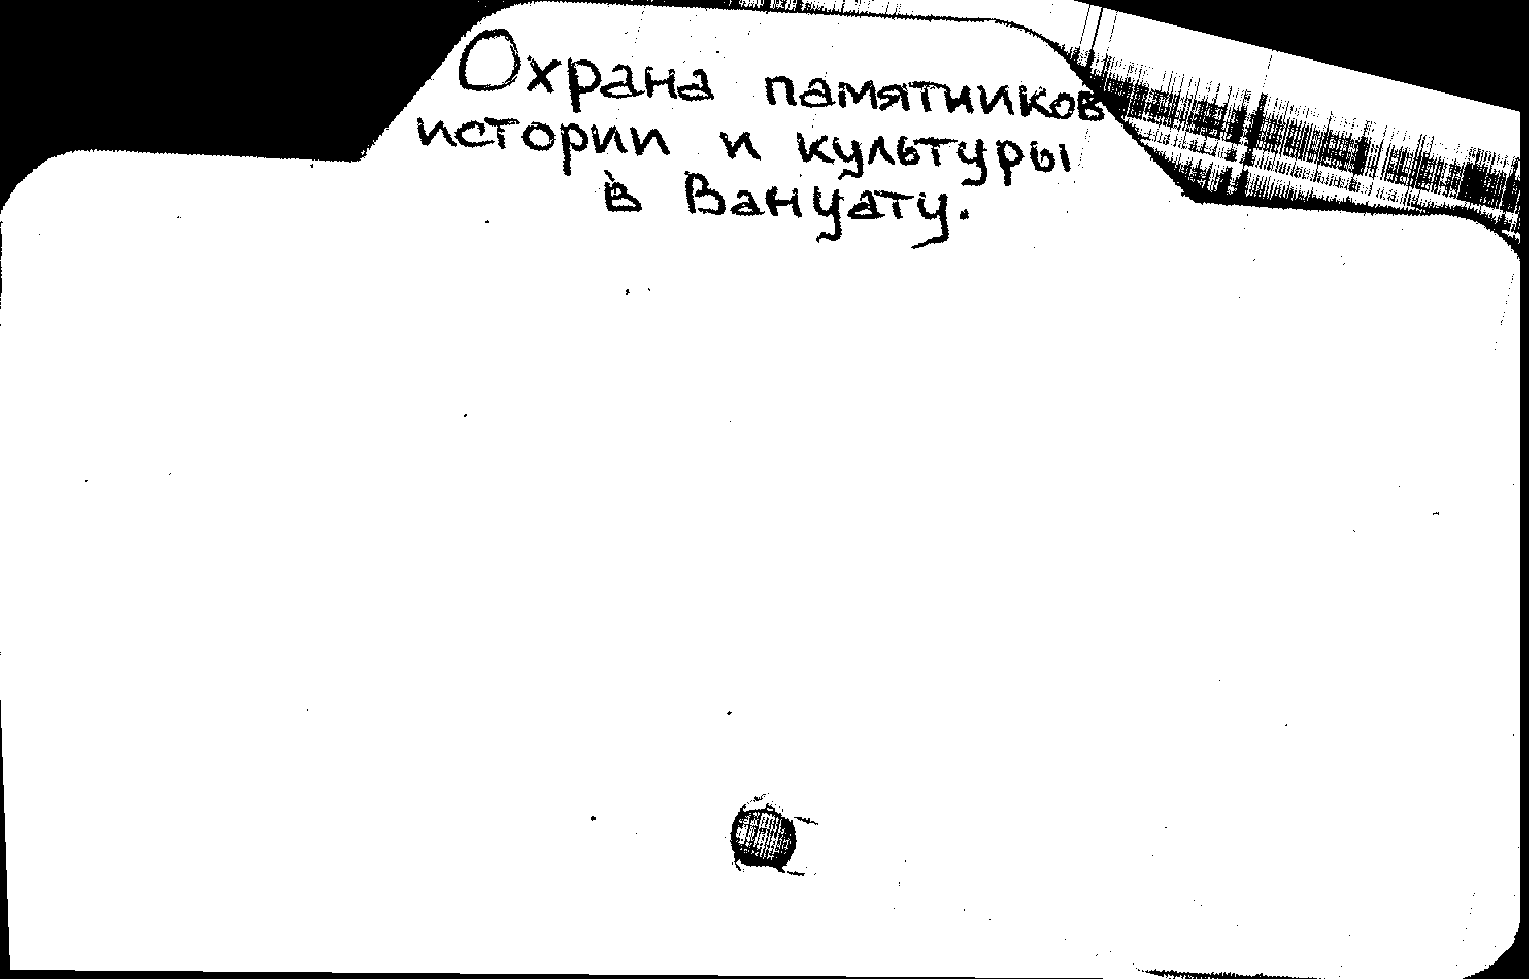 Охрана памятников
истории и культуры
в Вануату.